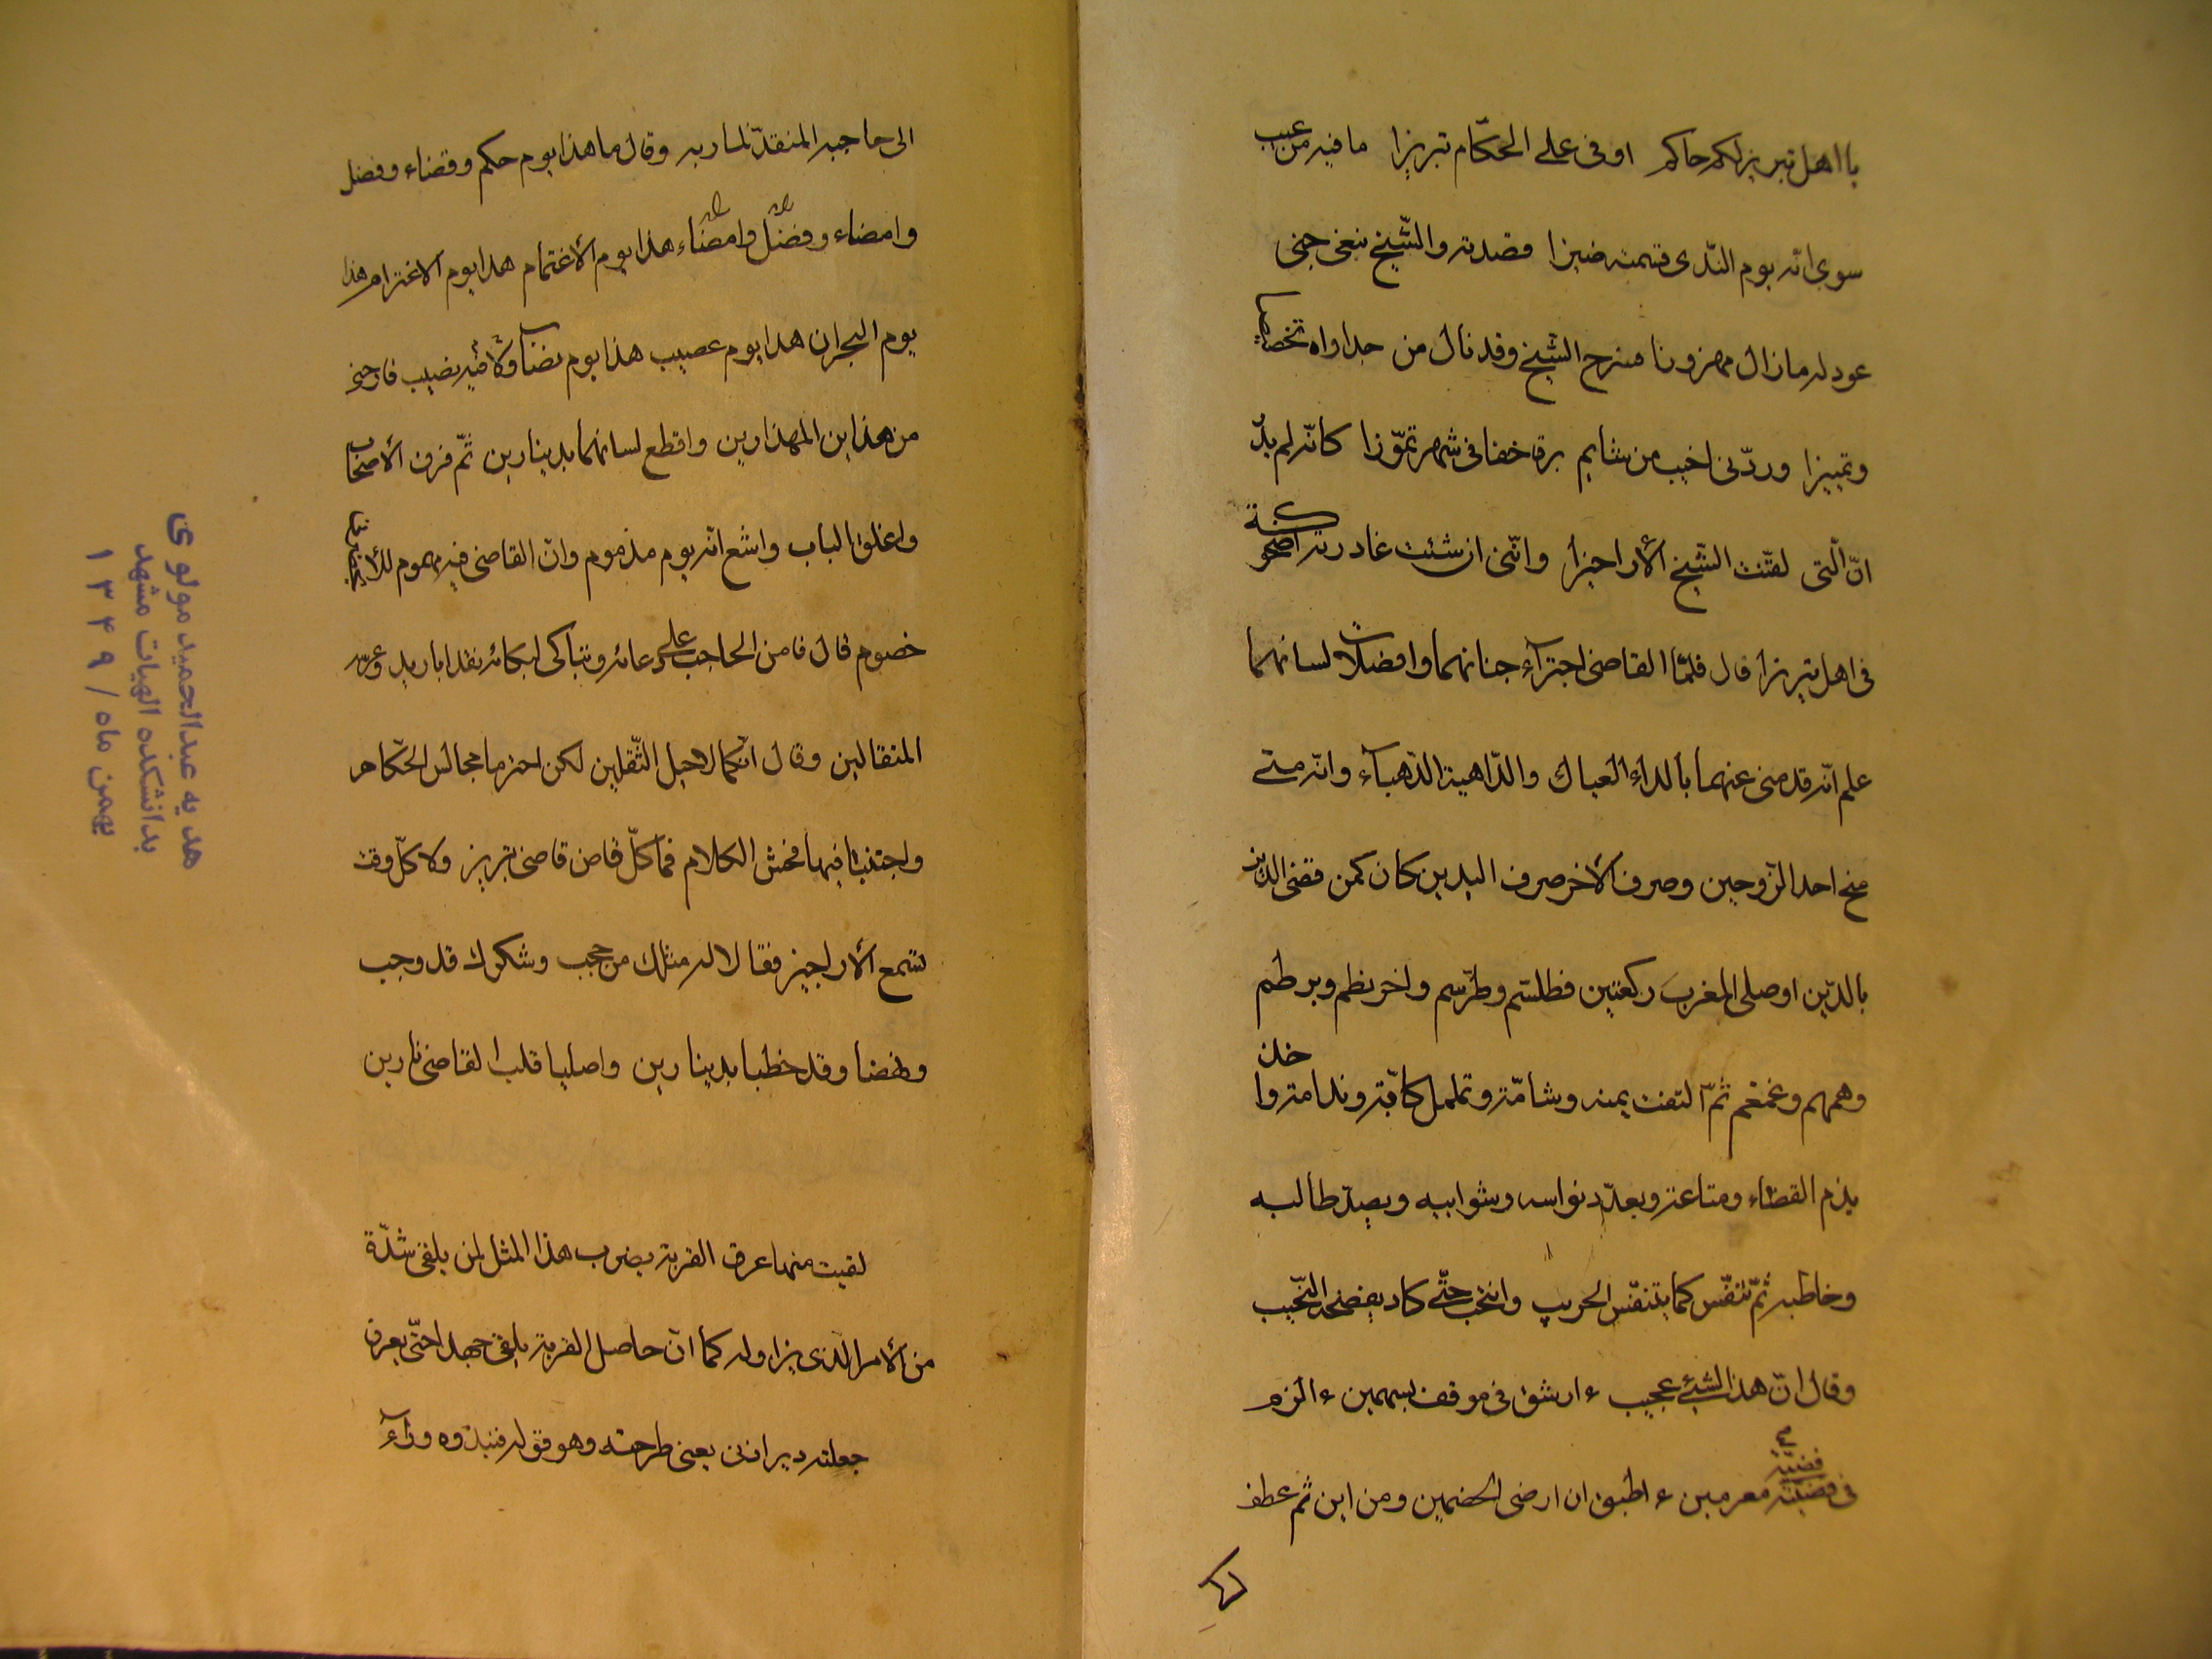 يا اهل تبريز لكم حاكم اوفى على الحكّام تبريزا ما فيه من عيب
سوى انّه يوم النّدى قسمته ضيزا قصدته والشّيخ نبغى جنى
عود له ما زال مهزوزا فسرح الشّيخ وقد نال من جداواه تخصيصا
وتمييزا وردّنى اخيب من شايم برقا خفا فى شهر تمّوزا كانّه لم يدر
انّ الّتى لقّنت الشّيخ الأراجيزا وانّنى ان شئت غادرته اضحوكة
فى اهل تبريزا قال فلمّا القاضى اجتراء جنانهما وانصلات لسانهما
علم انّه قد منى عنهما بالداء العياك والدّاهية الدّهياء وانّه متى
منح احد الزّوجين وصرف الأخر صرف اليدين كان كمن قضى الدّين
بالدّين او صلى المغرب ركعتين فطلسم وطرّسم واخرنطم وبرطم
وهمهم وغمغم ثمّ التفت يمنه وشامّة وتململ كابّة وندامة وا خذ
يذم القضاء ومتاعبه ويعدّد نوايبه وشوايبه ويفنّد طالبه
وخاطبه ثمّ تنفّس كما يتنفّس الحريب وانتحب حتّى كاد يفضحه النّحيب
وقال انّ هذا لشئ عجيب ءارشق فى موقف بسهمين ءالزم
فى قضيّة قضيّة مغرمين ءاطيق ان ارضى الخصمين ومن اين ثم عطف
الى حاجبه المنفّذ لماربه وقال ما هذا يوم حكم وقضاء وفصل
وامضاء وفضّل وامضاء هذا يوم الأغتمام هذا يوم الاغترام هذا
يوم البحران هذا يوم عصيب هذا يوم نصاب ولا فيه نصيب فارحنى
من هذاين المهذارين واقطع لسانهما بدينارين ثمّ فرق الأصحاب
واغلق الباب واشع انّه يوم مذموم وانّ القاضى فيه مهموم لئلا يحضرنى
خصوم قال فامن الحاجب على دعائه وتباكى لبكائه نقد ابا زيد وعرسه
المثقالين وقال انّكما لاحيل الثّقلين لكن احترما مجالس الحكّام
واجتنبا فيها فحش الكلام فما كلّ قاض قاضى تبريز ولا كلّ وقت
تسمع الأراجيز فقالا له مثلك من حجب وشكرك قد وجب
ونهضا وقد خطبا بدينارين واصليا قلب القاضى نارين
لقيت منها عرق القربة يضرب هذا المثل لمن يلقى شدّة
من الأمر الّذى يزاوله كما انّ حاصل القربة يلقى جهدا حتّى يعرق
جعلته دبر اذنى يعنى طرحته وهو قوله فنبذوه وراء
هديه عبدالحميد مولوى
بدانشكده الهيات مشهد
بهمن ماه / ۱۳۴۹